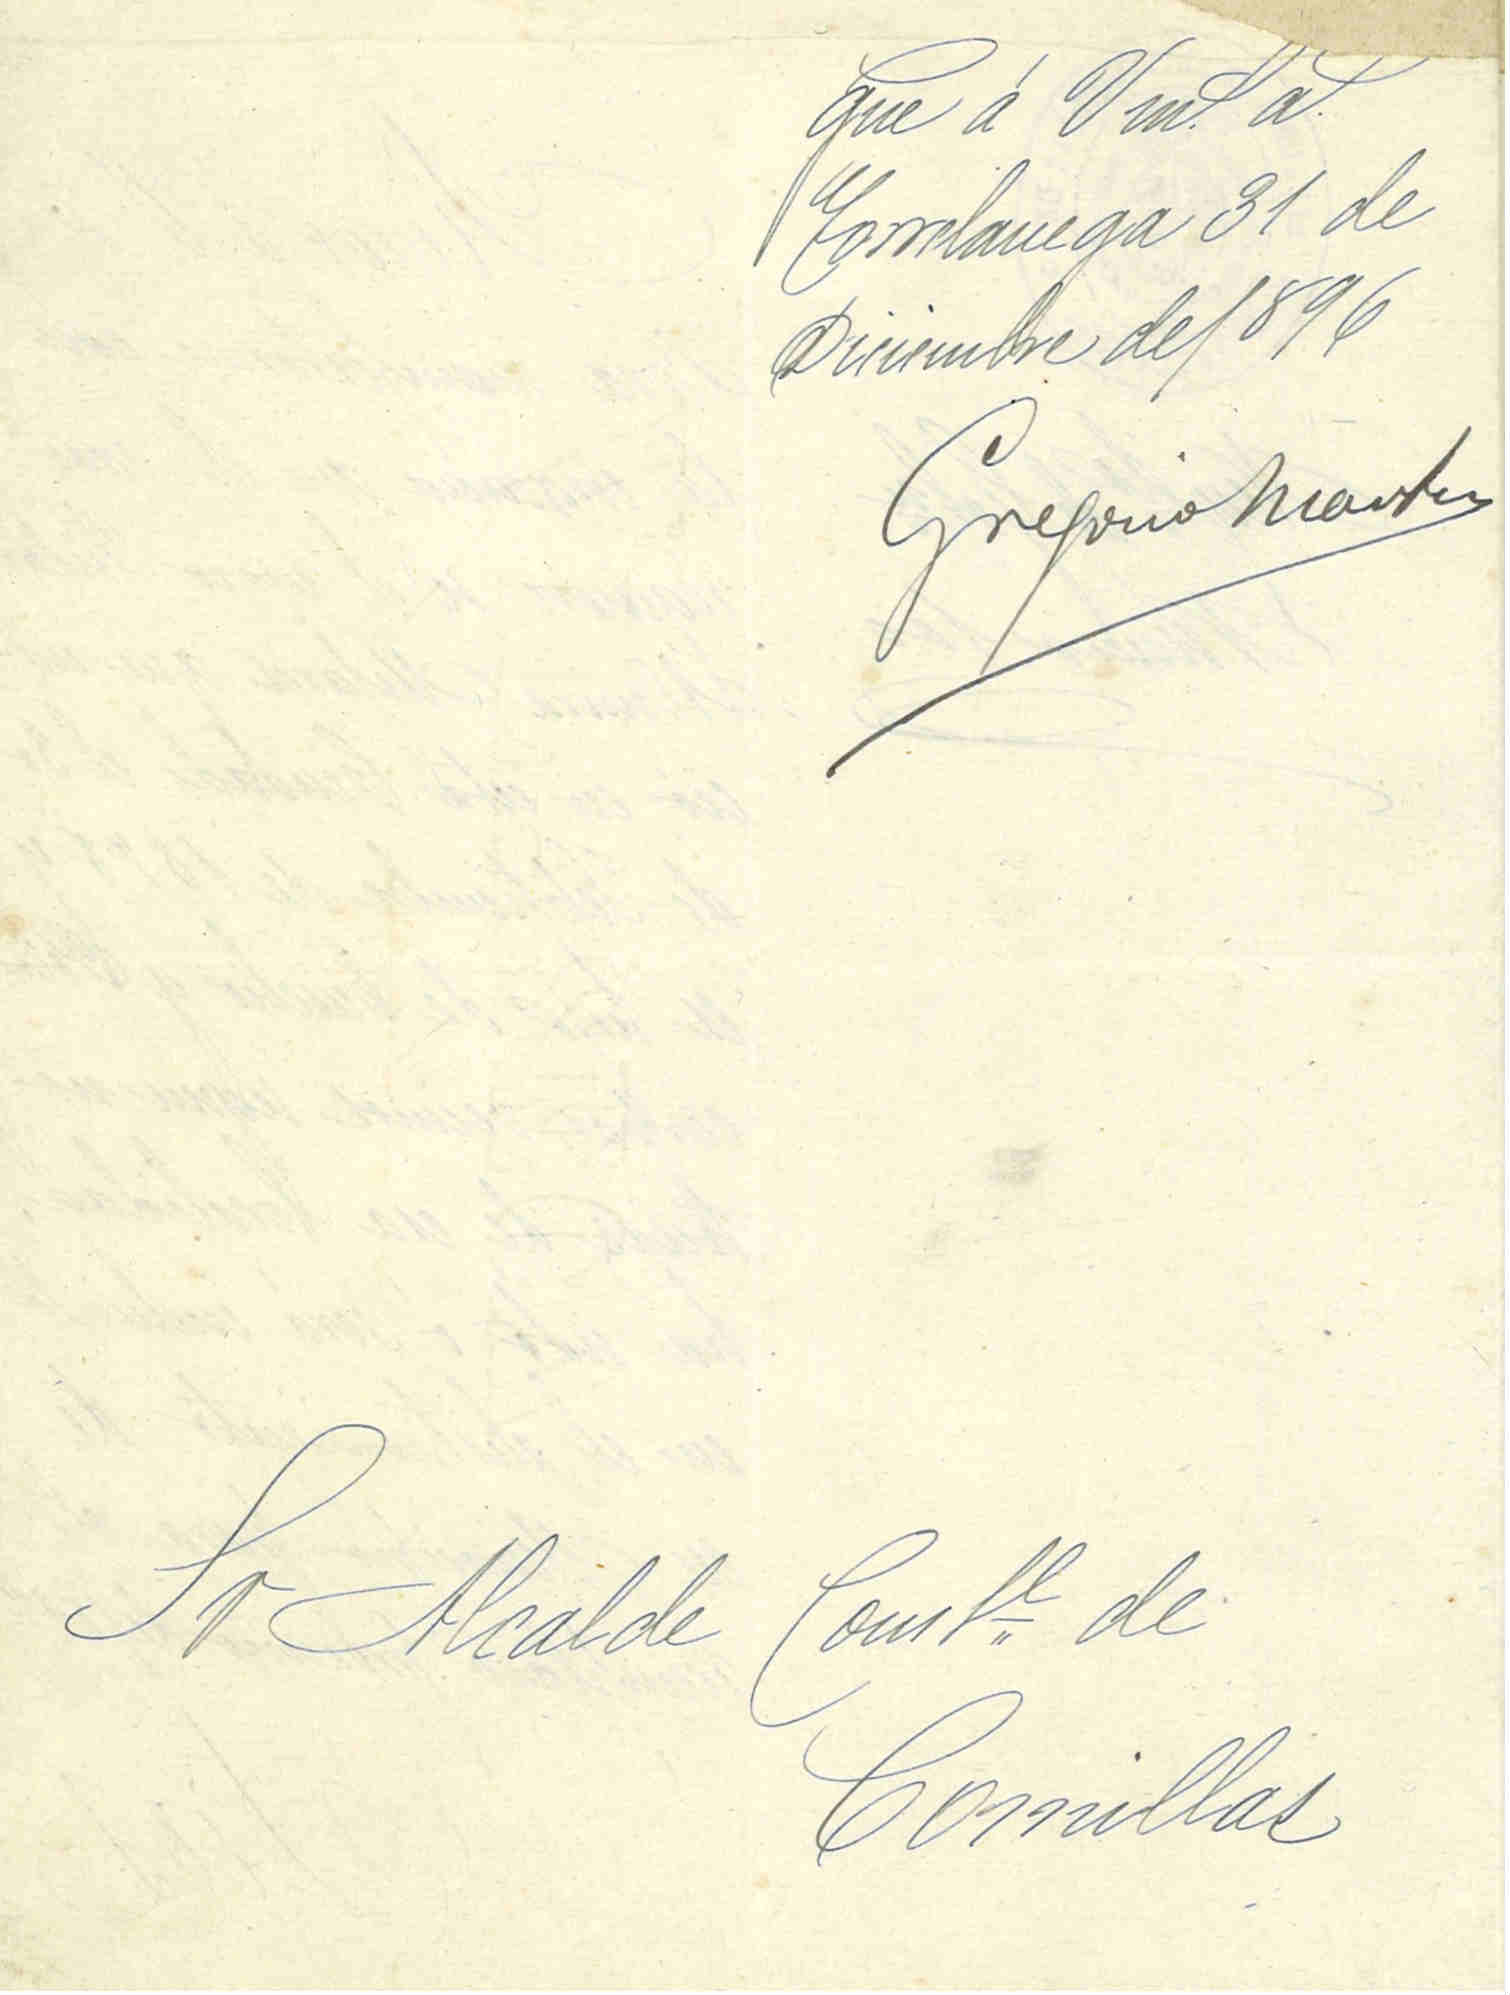 que á Vm. a.
Torrelavega 31 de
Diciembre de 1896
Gregorio Martin
Sr Alcalde Constl de
Comillas